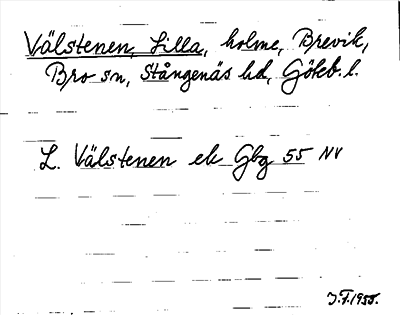 Välstenen, Lilla, holme, Brevik,
Bro sn, Stångenäs hd, Göteb. l.
L. Välstenen ek Gbg 55 NV
J.F. 1955.